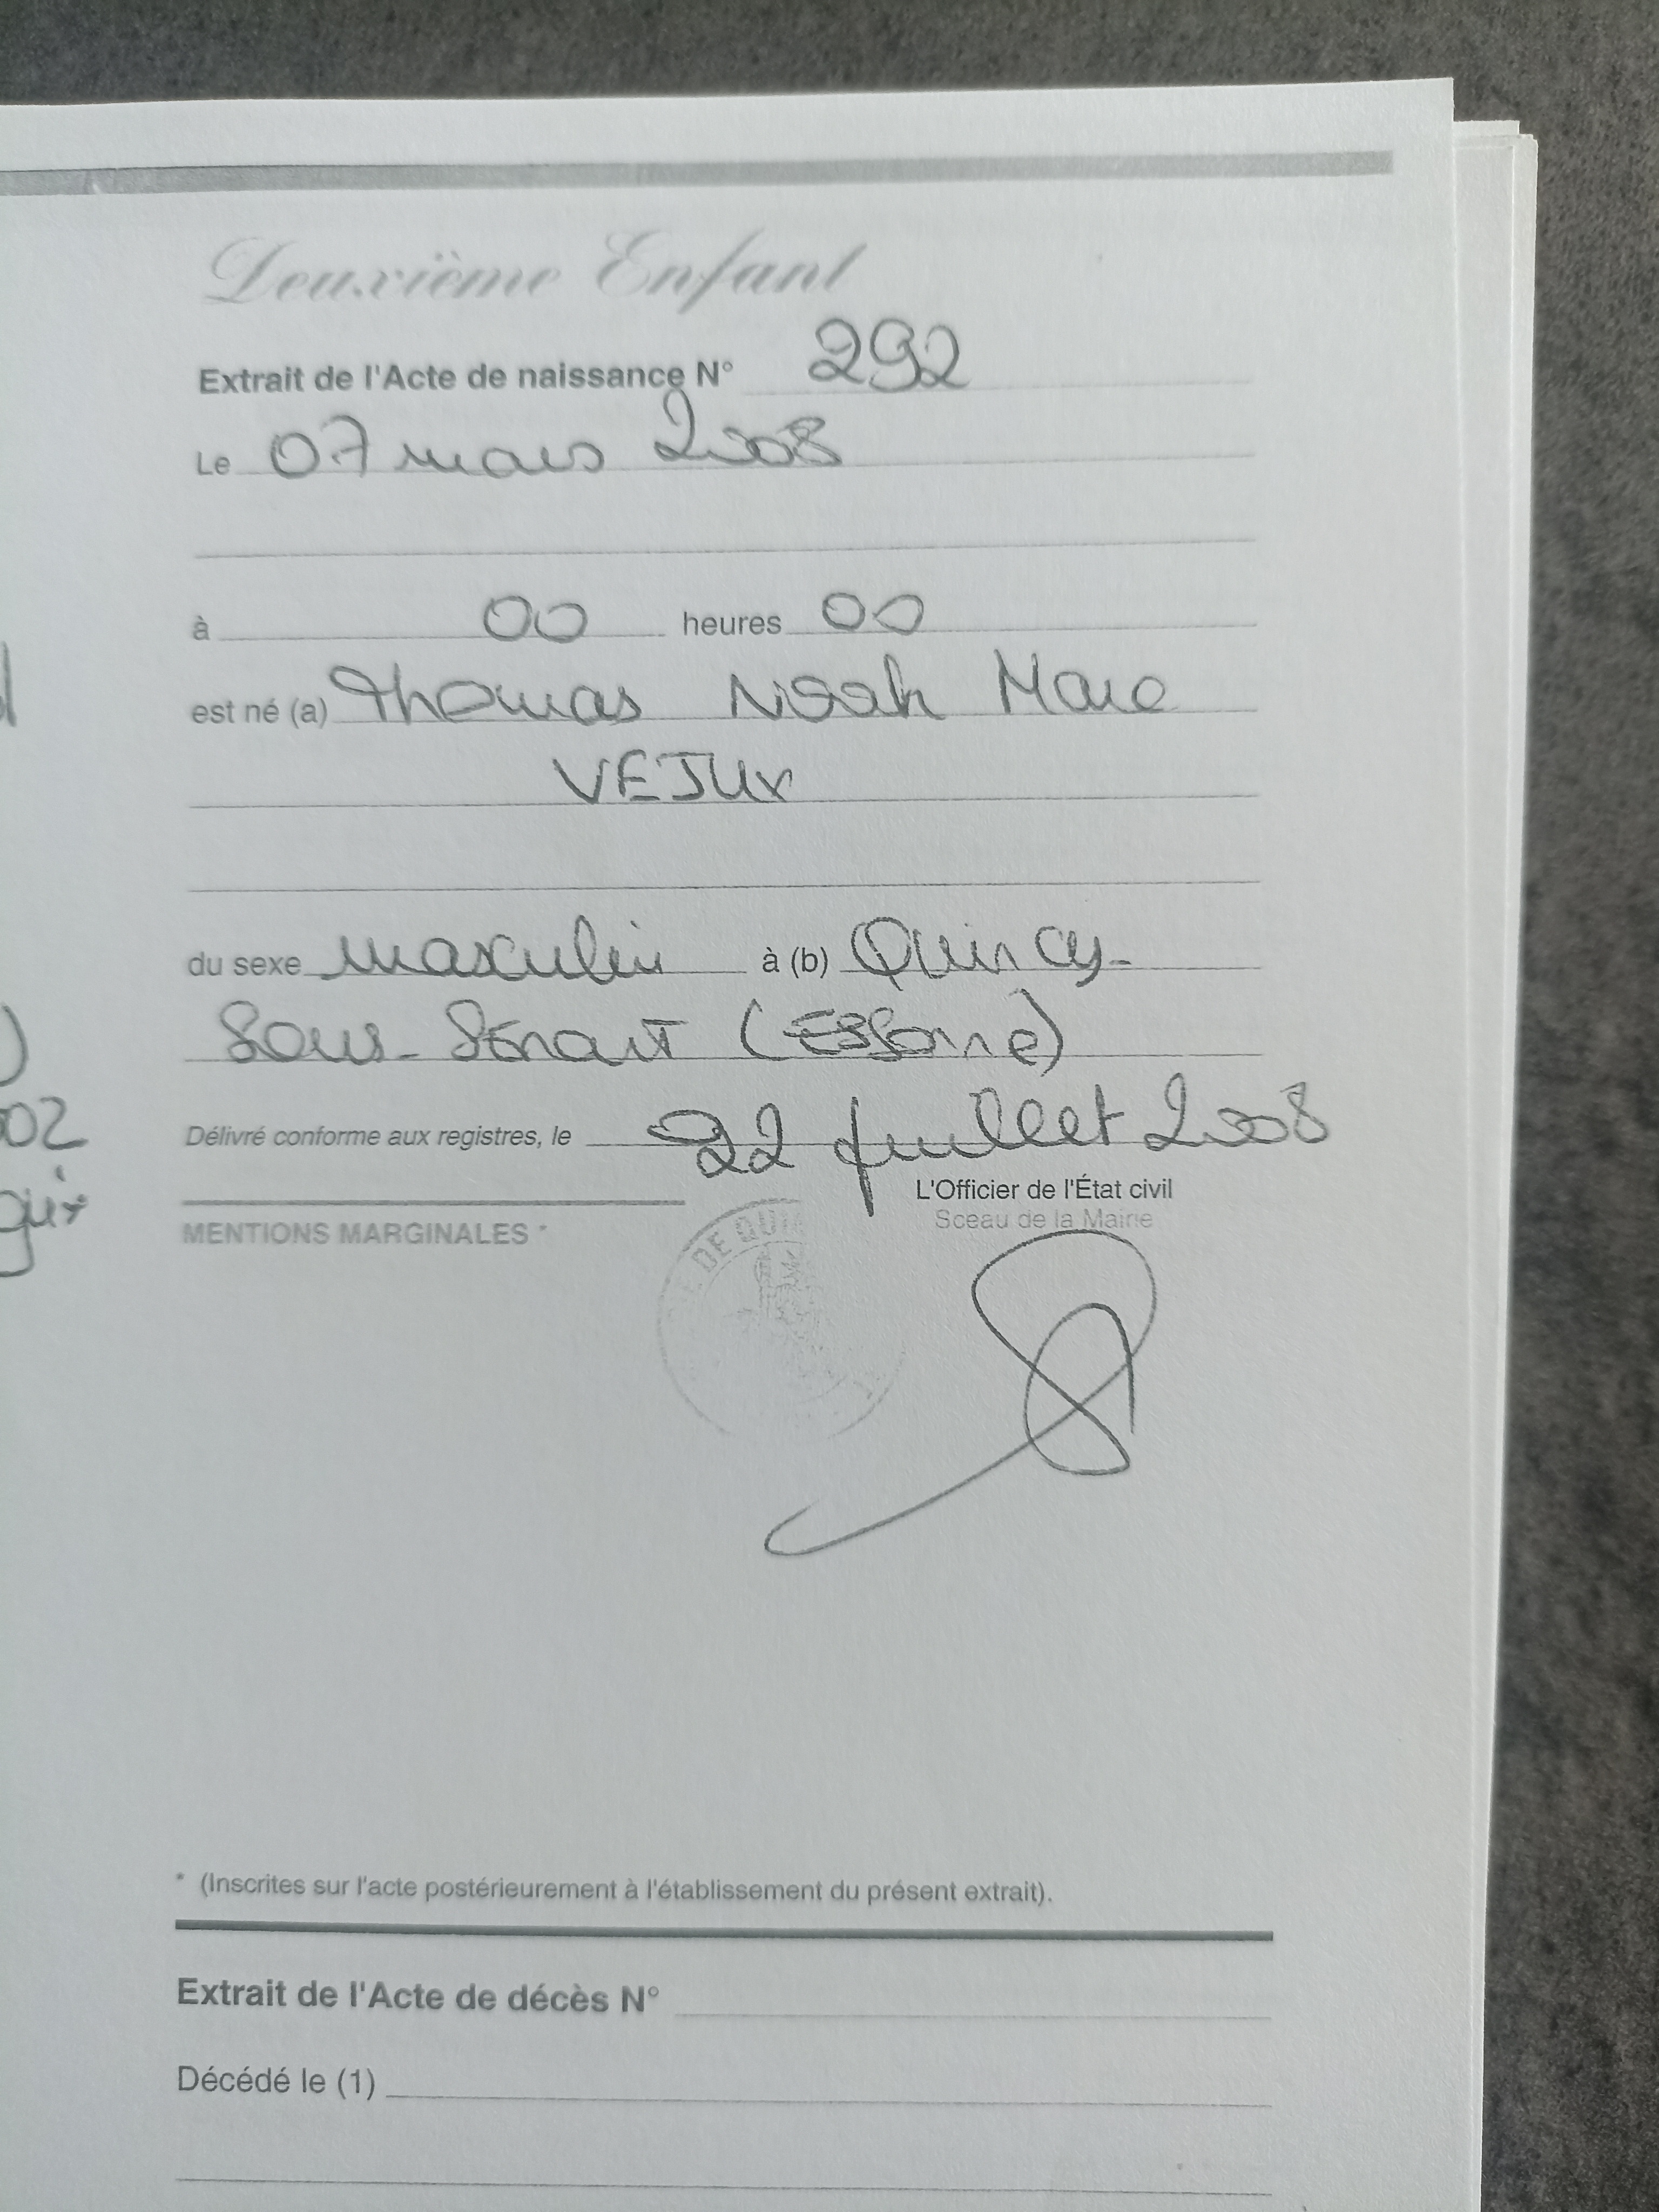 Deuxième Enfant
Extrait de l'Acte de naissance N° 292
Le 07 mars 2008
à 00 heures 00
est né (a) Thomas Noah Marc
VEJUX
du sexe masculin à (b) Quincy-
Sous-Sénart (Essonne)
002
Délivré conforme aux registres, le 22 juillet 2008
L'Officier de l'État civil
Sceau de la Mairie
MENTIONS MARGINALES *
DE QUI
* (Inscrites sur l'acte postérieurement à l'établissement du présent extrait).
Extrait de l'Acte de décès N°
Décédé le (1)